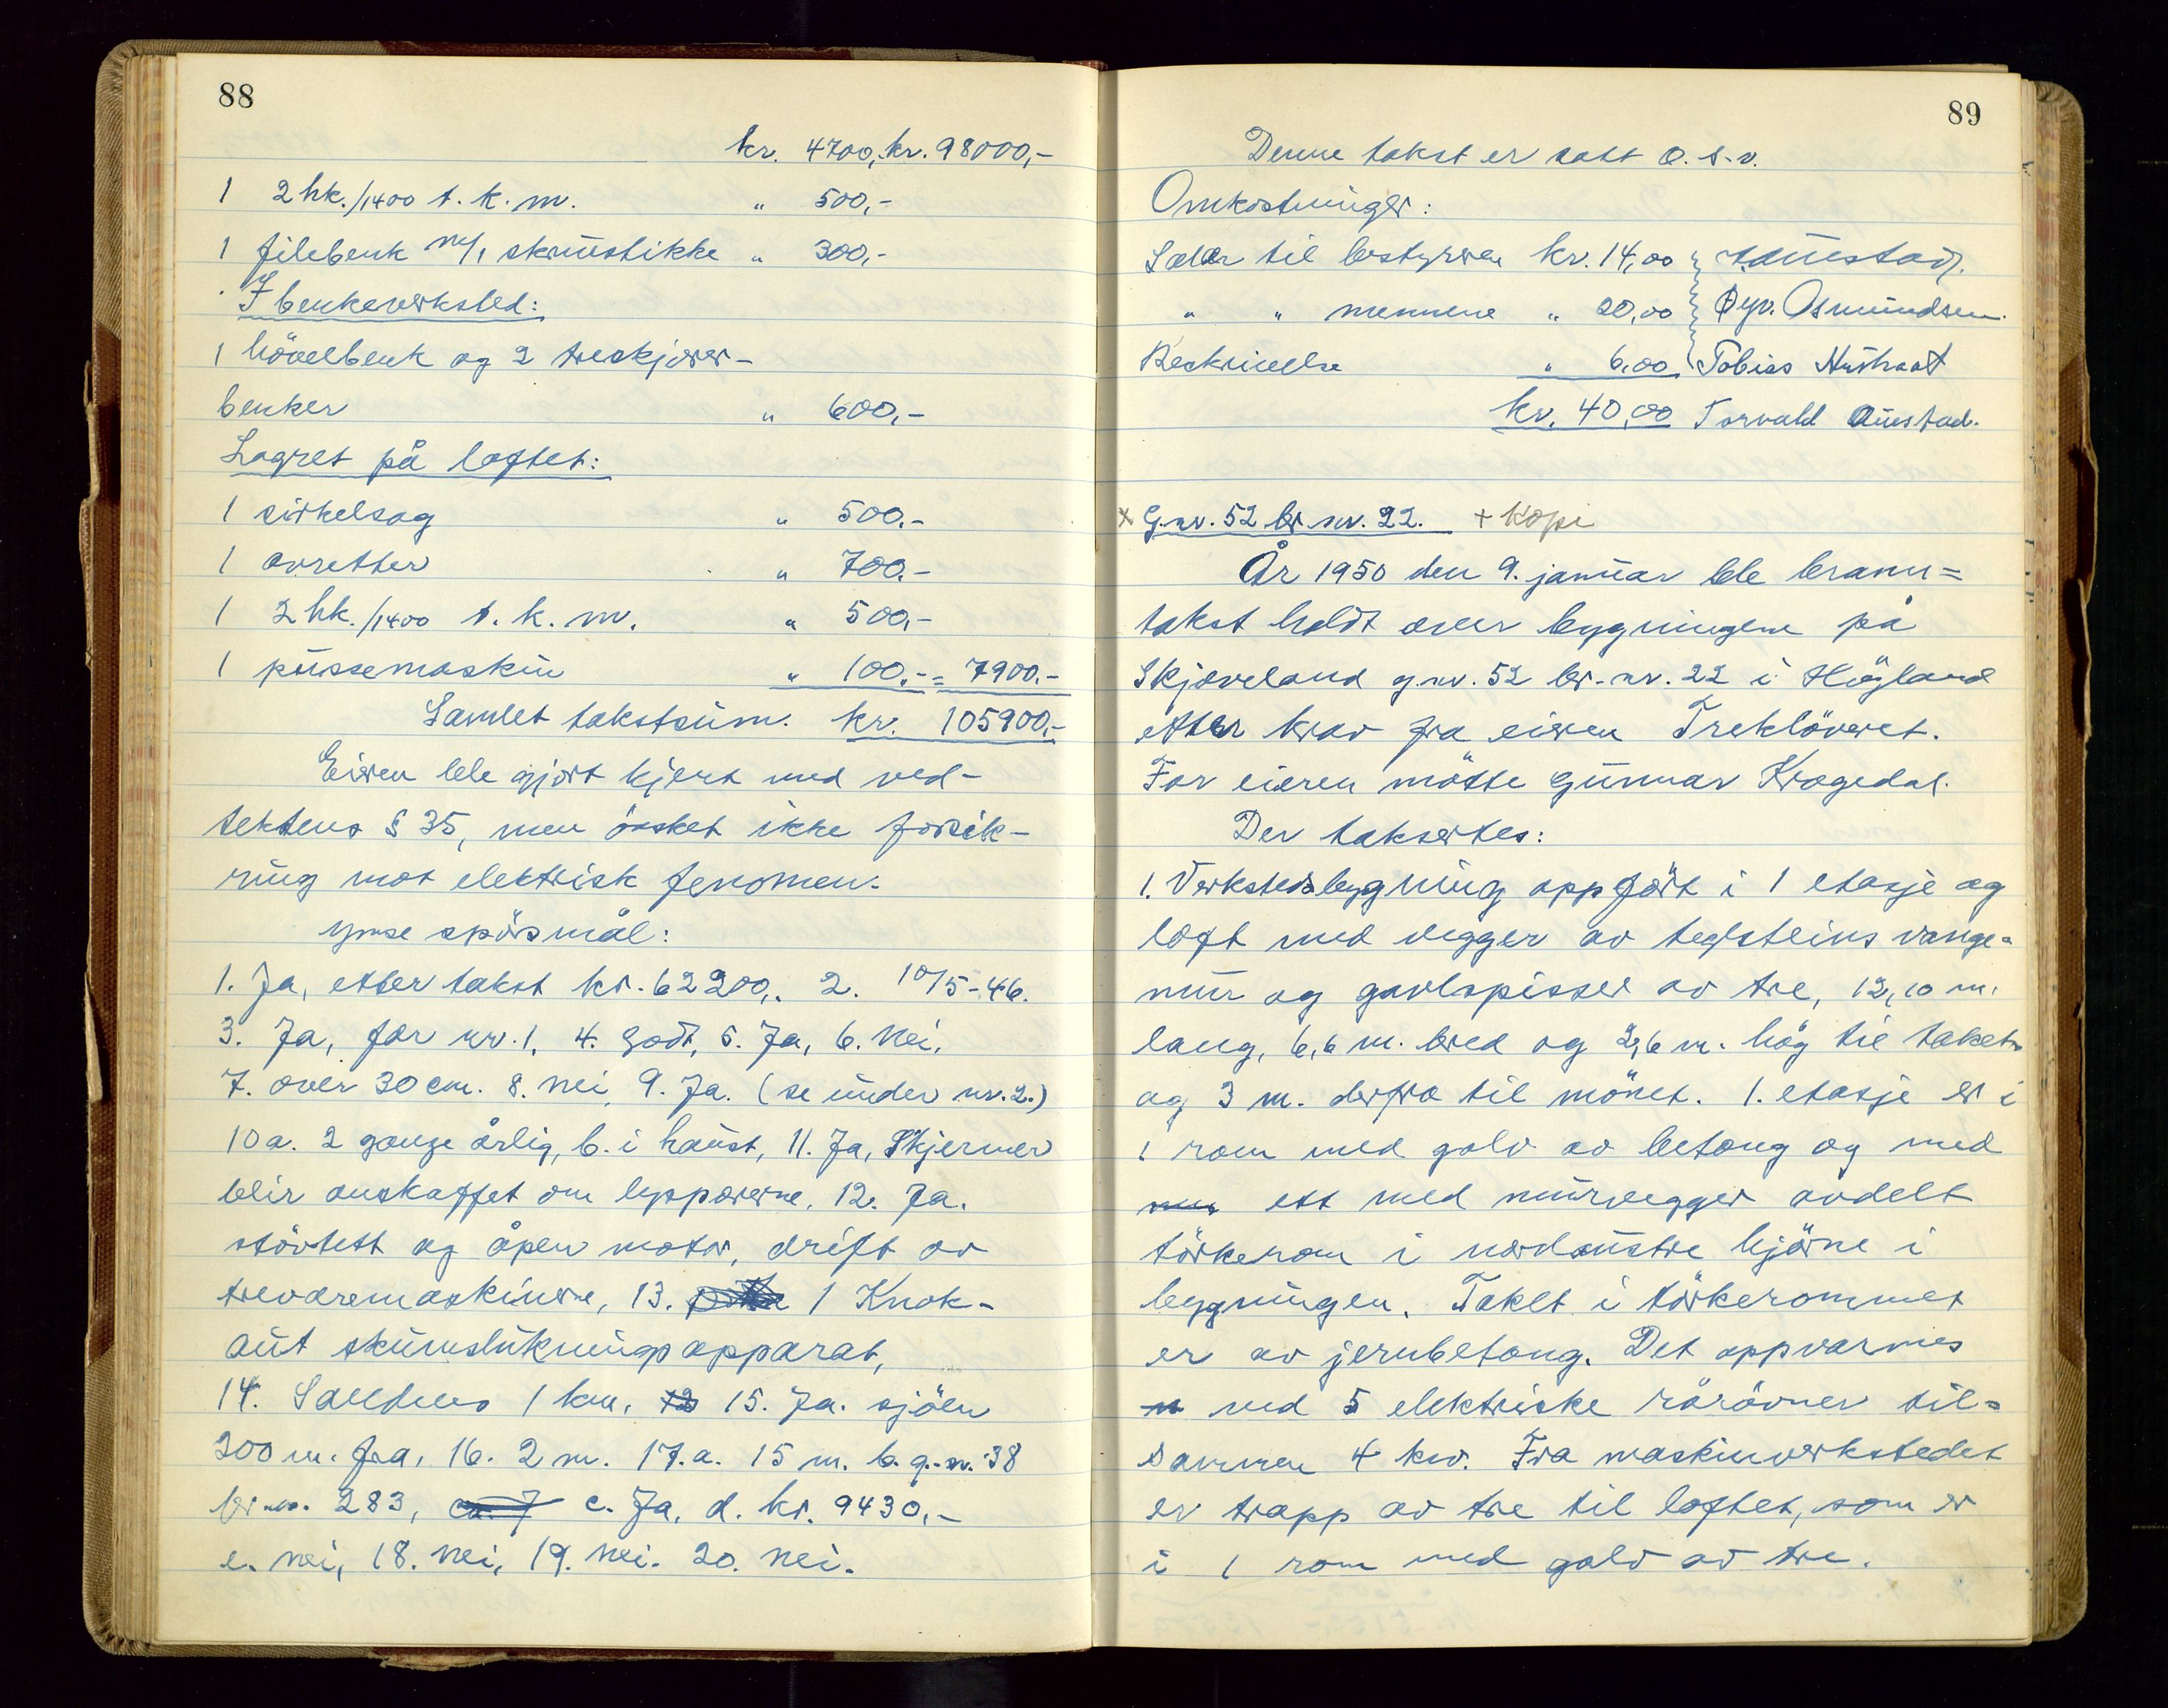 88
kr. 4700,- kr. 98000,-
1 2 hk./1400 t. k. m. " 500,-
1 filebenk m/1 skrustikke " 300,-
I benkeverksted:
1 hövelbenk og 2 treskjærer-
benker " 600,-
Lagret på loftet:
1 sirkelsag " 500.-
1 avretter " 700.-
1 2 hk./1400 t. k. m. " 500,-
1 pussemaskin " 100.- = 7900.-
Samlet takstsum. kr. 105900,-
Eieren ble gjort kjent med ved-
tektens § 35, men önsket ikke forsik-
ring mot elektrisk fenomen.
Ymse spörsmål:
1. Ja, etter takst kr. 62200,. 2. 10/5-46.
3. Ja, for nr. 1, 4. godt, 5. Ja, 6. Nei,
7. over 30 cm. 8. nei, 9. Ja. (se under nr. 2.)
10a. 2 gange årlig, b. i haust, 11. Ja, Skjermer
blir anskaffet om lyppærerne. 12. Ja.
stövtett og åpen motor, drift av
trevaremaskinene, 13. 1 Knok-
aut skumslukningsapparat,
14. Sandnes 1 km, 15. Ja. sjöen
200 m. fra, 16. 2 m. 17. a. 15 m. b. g.-nr. 38
br.nr. 283, c. Ja, d. kr. 9430,-
e. nei, 18. nei, 19. nei. 20. nei.
89
Denne takst er satt o.s.v.
Omkostninger:
Salær til bestyreren kr. 14,00 T. Austad.
" " mennene " 20,00 Øyv. Osmundsen.
Beskrivelse " 6,00 Tobias Austraat
kr. 40,00 Torvald Austad.
x G.nr. 52 br.nr. 22. + Kopi
År 1950 den 9. januar ble brann=
takst holdt over bygningene på
Skjæveland g.nr. 52 br.-nr. 22 i Höyland
etter krav fra eieren Treklöveret.
For eieren mötte Gunnar Kragedal.
Der taksertes:
1. Verkstedsbygning oppfört i 1 etasje og
loft med vegger av teglsteins vange=
mur og gavlspisser av tre, 12,10 m.
lang, 6,6 m. bred og 2,6 m. hög til taket
og 3 m. derfra til mönet. 1. etasje er i
1 rom med golv av betong og med
ett med murvegger avdelt
törkerom i nordaustre hjörne i
bygningen. Taket i törkerommet
er av jernbetong. Det oppvarmes
ved 5 elektriske rörovner til=
sammen 4 kw. Fra maskinverkstedet
er trapp av tre til loftet, som er
i 1 rom med golv av tre.